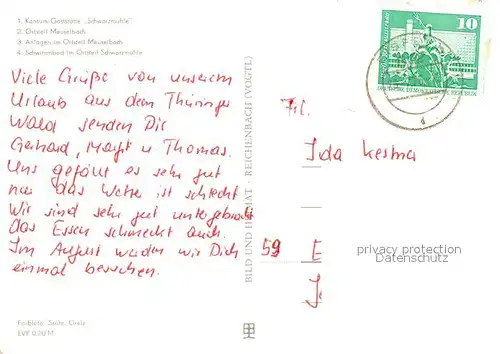 1. Konsum-Gaststätte „Schwarzmühle"
2. Ortsteil Meuselbach
3. Anlagen im Ortsteil Meuselbach
4. Schwimmbad im Ortsteil Schwarzmühle
Viele Grüße von unserem
Urlaub aus dem Thüringer
Wald senden Dir
Gerhard, Margit u. Thomas.
Uns gefällt es sehr gut
nur das Wetter ist schlecht
Wir sind sehr gut untergebracht
das Essen schmeckt auch.
Im August werden wir Dich
einmal besuchen.
Farbfoto: Seidel, Greiz
EVP 0,20 M
BILD UND HEIMAT · REICHENBACH (VOGTL)
10
DEUTSCHE DEMOKRATISCHE REPUBLIK
Frl.
Ida
59 E
privacy protection
Datenschutz